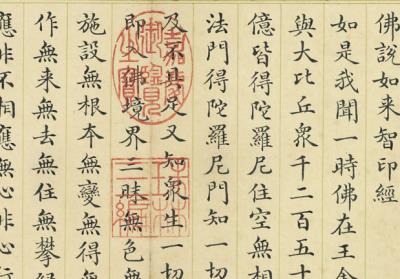 佛說如來智印經
如是我聞一時佛在王舍
與大比丘衆千二百五十
億皆得陀羅尼住空無相
法門得陀羅尼門知一切
及不具足又知衆生一切
即入佛境界三昧無色無
施設無根本無變無得無
作無来無去無住無攀
應非不相應無心非心行
嘉慶御覽之寶